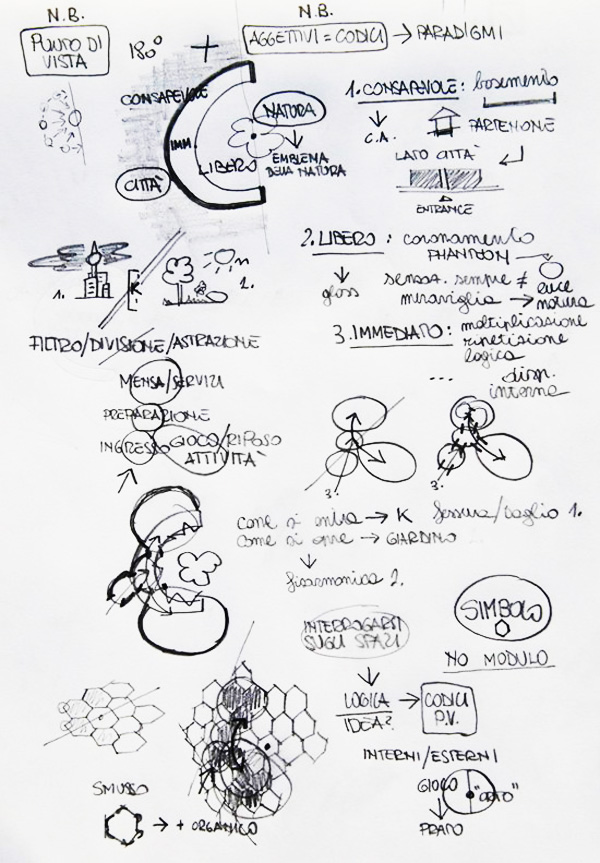 N.B.
N.B.
PUNTO DI
VISTA
180°
+
AGGETTIVI = CODICI → PARADIGMI
CONSAPEVOLE
IMM.
LIBERO
CITTÀ
NATURA
EMBLEMA
DELLA NATURA
1. CONSAPEVOLE : basamento
C.A.
PARTENONE
LATO CITTÀ
ENTRANCE
2. LIBERO : coronamento
PHANTEON
gloss
sensaz. sempre ≠
meraviglia → luce
natura
3. IMMEDIATO : moltiplicazione
ripetizione
logica
... disp.
interna
1.
K
2.
FILTRO/DIVISIONE/ASTRAZIONE
MENSA/SERVIZI
PREPARAZIONE
INGRESSO GIOCO/RIPOSO
ATTIVITÀ
3.
3.
come si entra → K fessura/taglio 1.
come si apre → GIARDINO
fisarmonica 2.
INTERROGARSI
SUGLI SPAZI
SIMBOLO
NO MODULO
LOGICA → CODICI
IDEA? P.V.
INTERNI/ESTERNI
GIOCO
"ORTO"
PRATO
SMUSSO
→ + ORGANICO